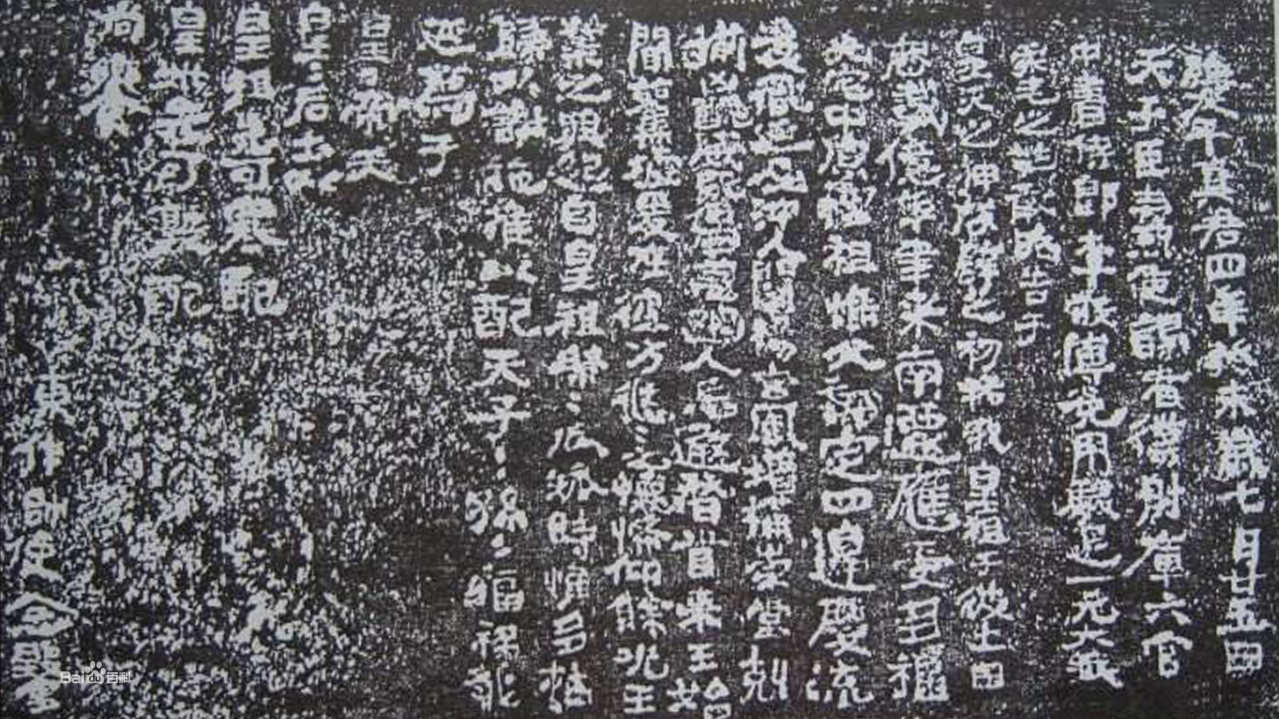 平真君四年癸未歲七月廿五日
天子臣燾使謁者僕射庫六官
中書侍郎李敞傅㝹用駿足一元大武
柔毛之牲敢昭告于
皇天之神啟辟之初祐我皇祖于彼土田
歷載億年聿來南遷應受多福
光宅中原惟祖惟父拓定四邊慶流
後胤延及沖人闡揚玄風增構崇堂剋
揃凶醜威暨四荒幽人忘遐稽首來王始
聞舊墟爰在彼方悠〻之懷希仰餘光王
業之興起自皇祖綿〻瓜瓞時惟多祜
歸以謝施推以配天子〻孫〻福祿永
延薦于
皇〻帝天
皇〻后土以
皇祖先可寒配
皇妣先可敦配
尚饗
東作帥使念鑿
Bai 百科